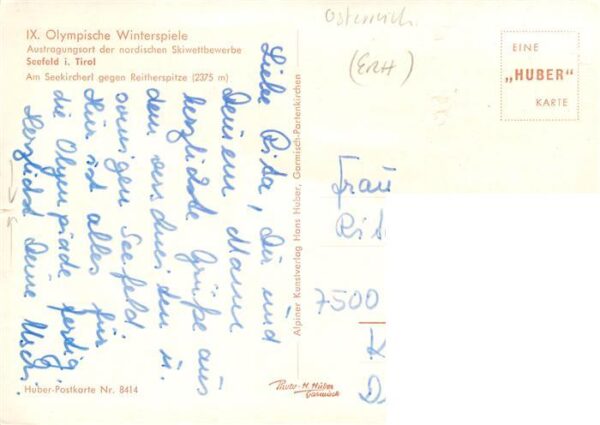 IX. Olympische Winterspiele
Austragungsort der nordischen Skiwettbewerbe
Seefeld i. Tirol
Am Seekircherl gegen Reitherspitze (2375 m)
Liebe Rita, Dir und
Deinem Mann
herzlichste Grüße aus
dem verschneiten u.
sonnigen Seefeld
Hier ist alles für
die Olympiade fertig
Herzlichst Deine
Huber-Postkarte Nr. 8414
Alpiner Kunstverlag Hans Huber, Garmisch-Partenkirchen
Photo-H. Huber
Garmisch
Österreich
(ERH)
EINE
„HUBER"
KARTE
Frau
Rit
7500
K
D